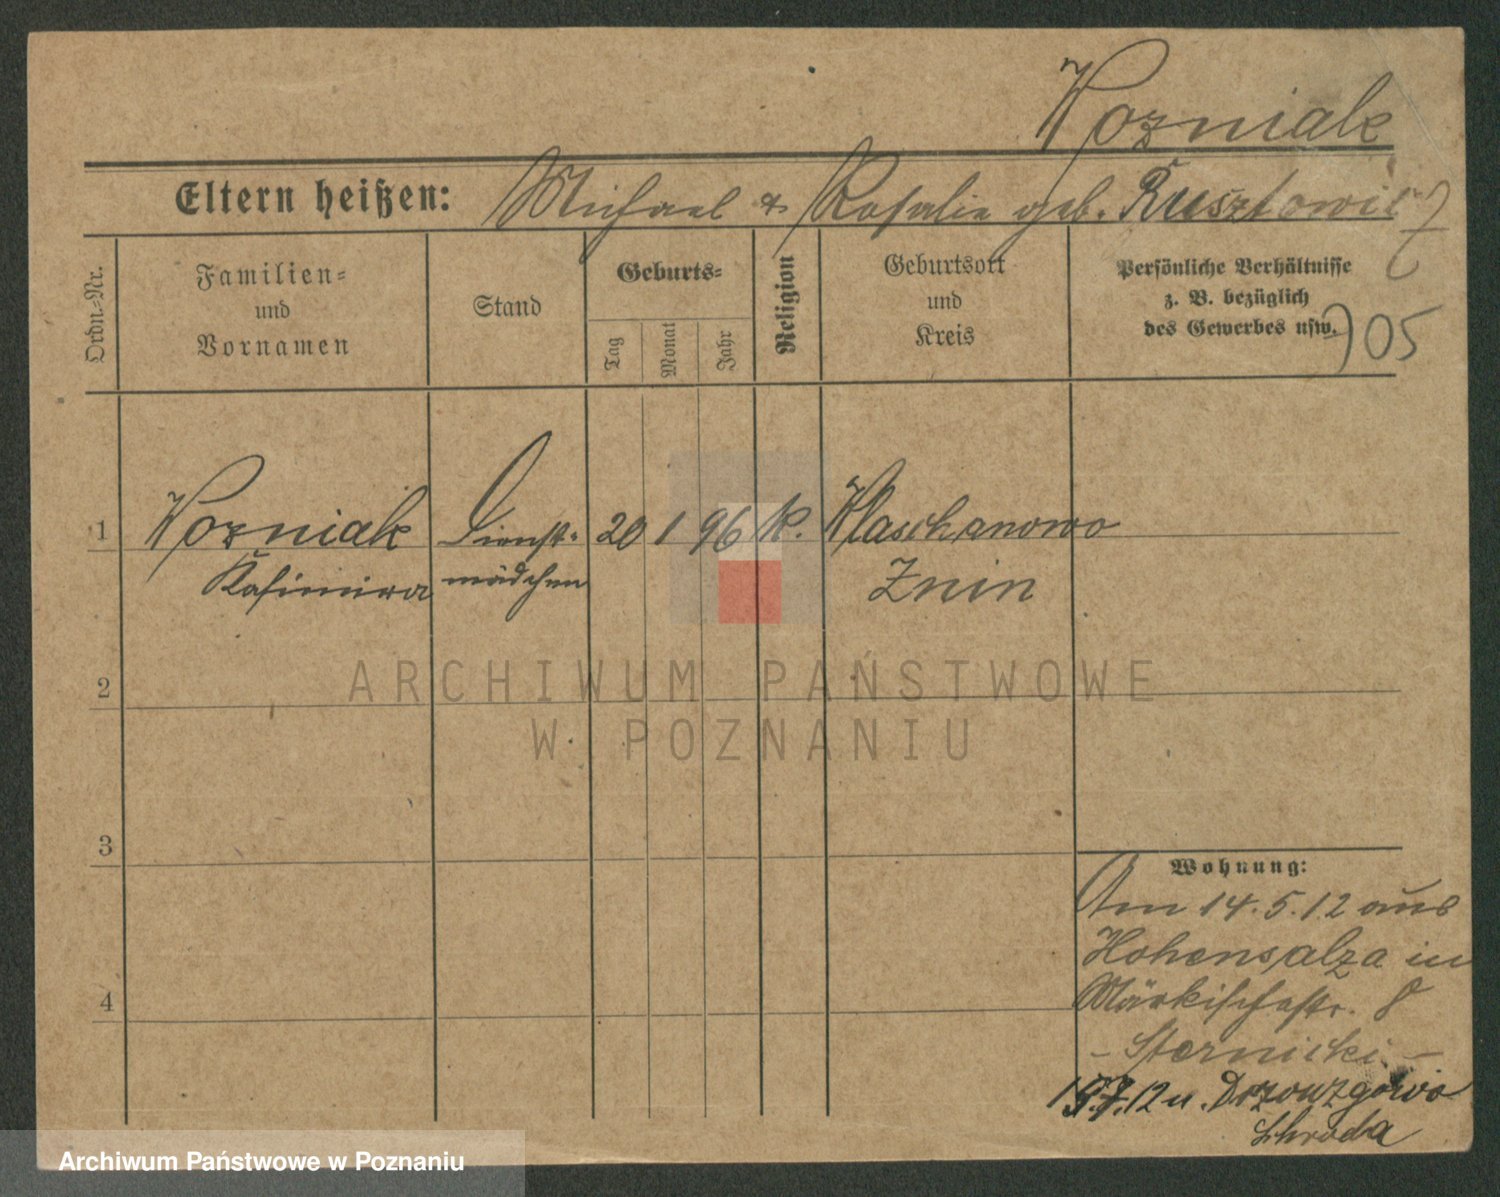 Wozniak
Eltern heißen: Michael & Rosalie geb.
7
Ordn.-Nr.
Familien-
und
Vornamen
Stand
Geburts-
Tag
Monat
Jahr
Religion
Geburtsort
und
Kreis
Persönliche Verhältnisse
z. B. bezüglich
des Gewerbes usw.
705
1 Wozniak Dienst- 20 1 96 k. Klaschanowo
Kasimira mädchen Znin
2
3
4
Wohnung:
Am 14.5.12 aus
Hohensalza in
Märkischestr. 8
12 n.
Schroda
ARCHIWUM PAŃSTWOWE
W POZNANIU
Archiwum Państwowe w Poznaniu